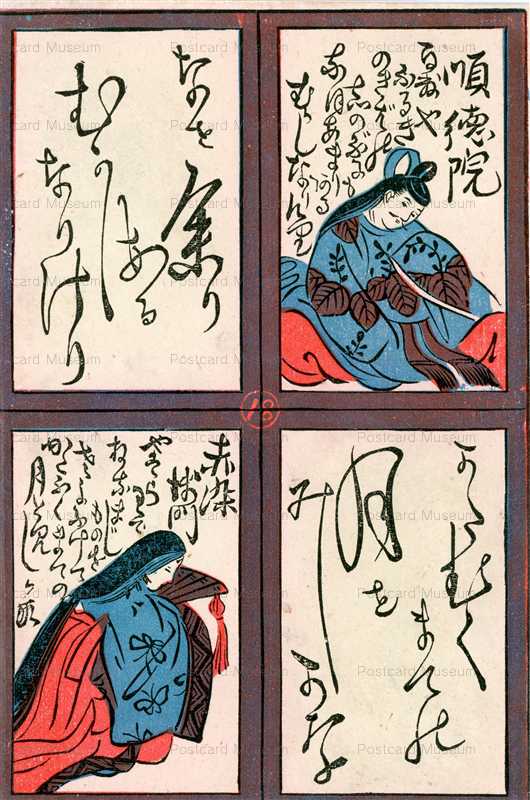 順徳院
百敷や
ふるき
のきばの
しのぶにも
なほあまりある
むかしなりけり
なを余り
ある
むかし
なりけり
18
赤染
衛門
やすらはで
ねなまし
ものを
さよふけて
かたふくまでの
月を見しかな
かたむく
までの
月を
みしかな
Postcard Museum